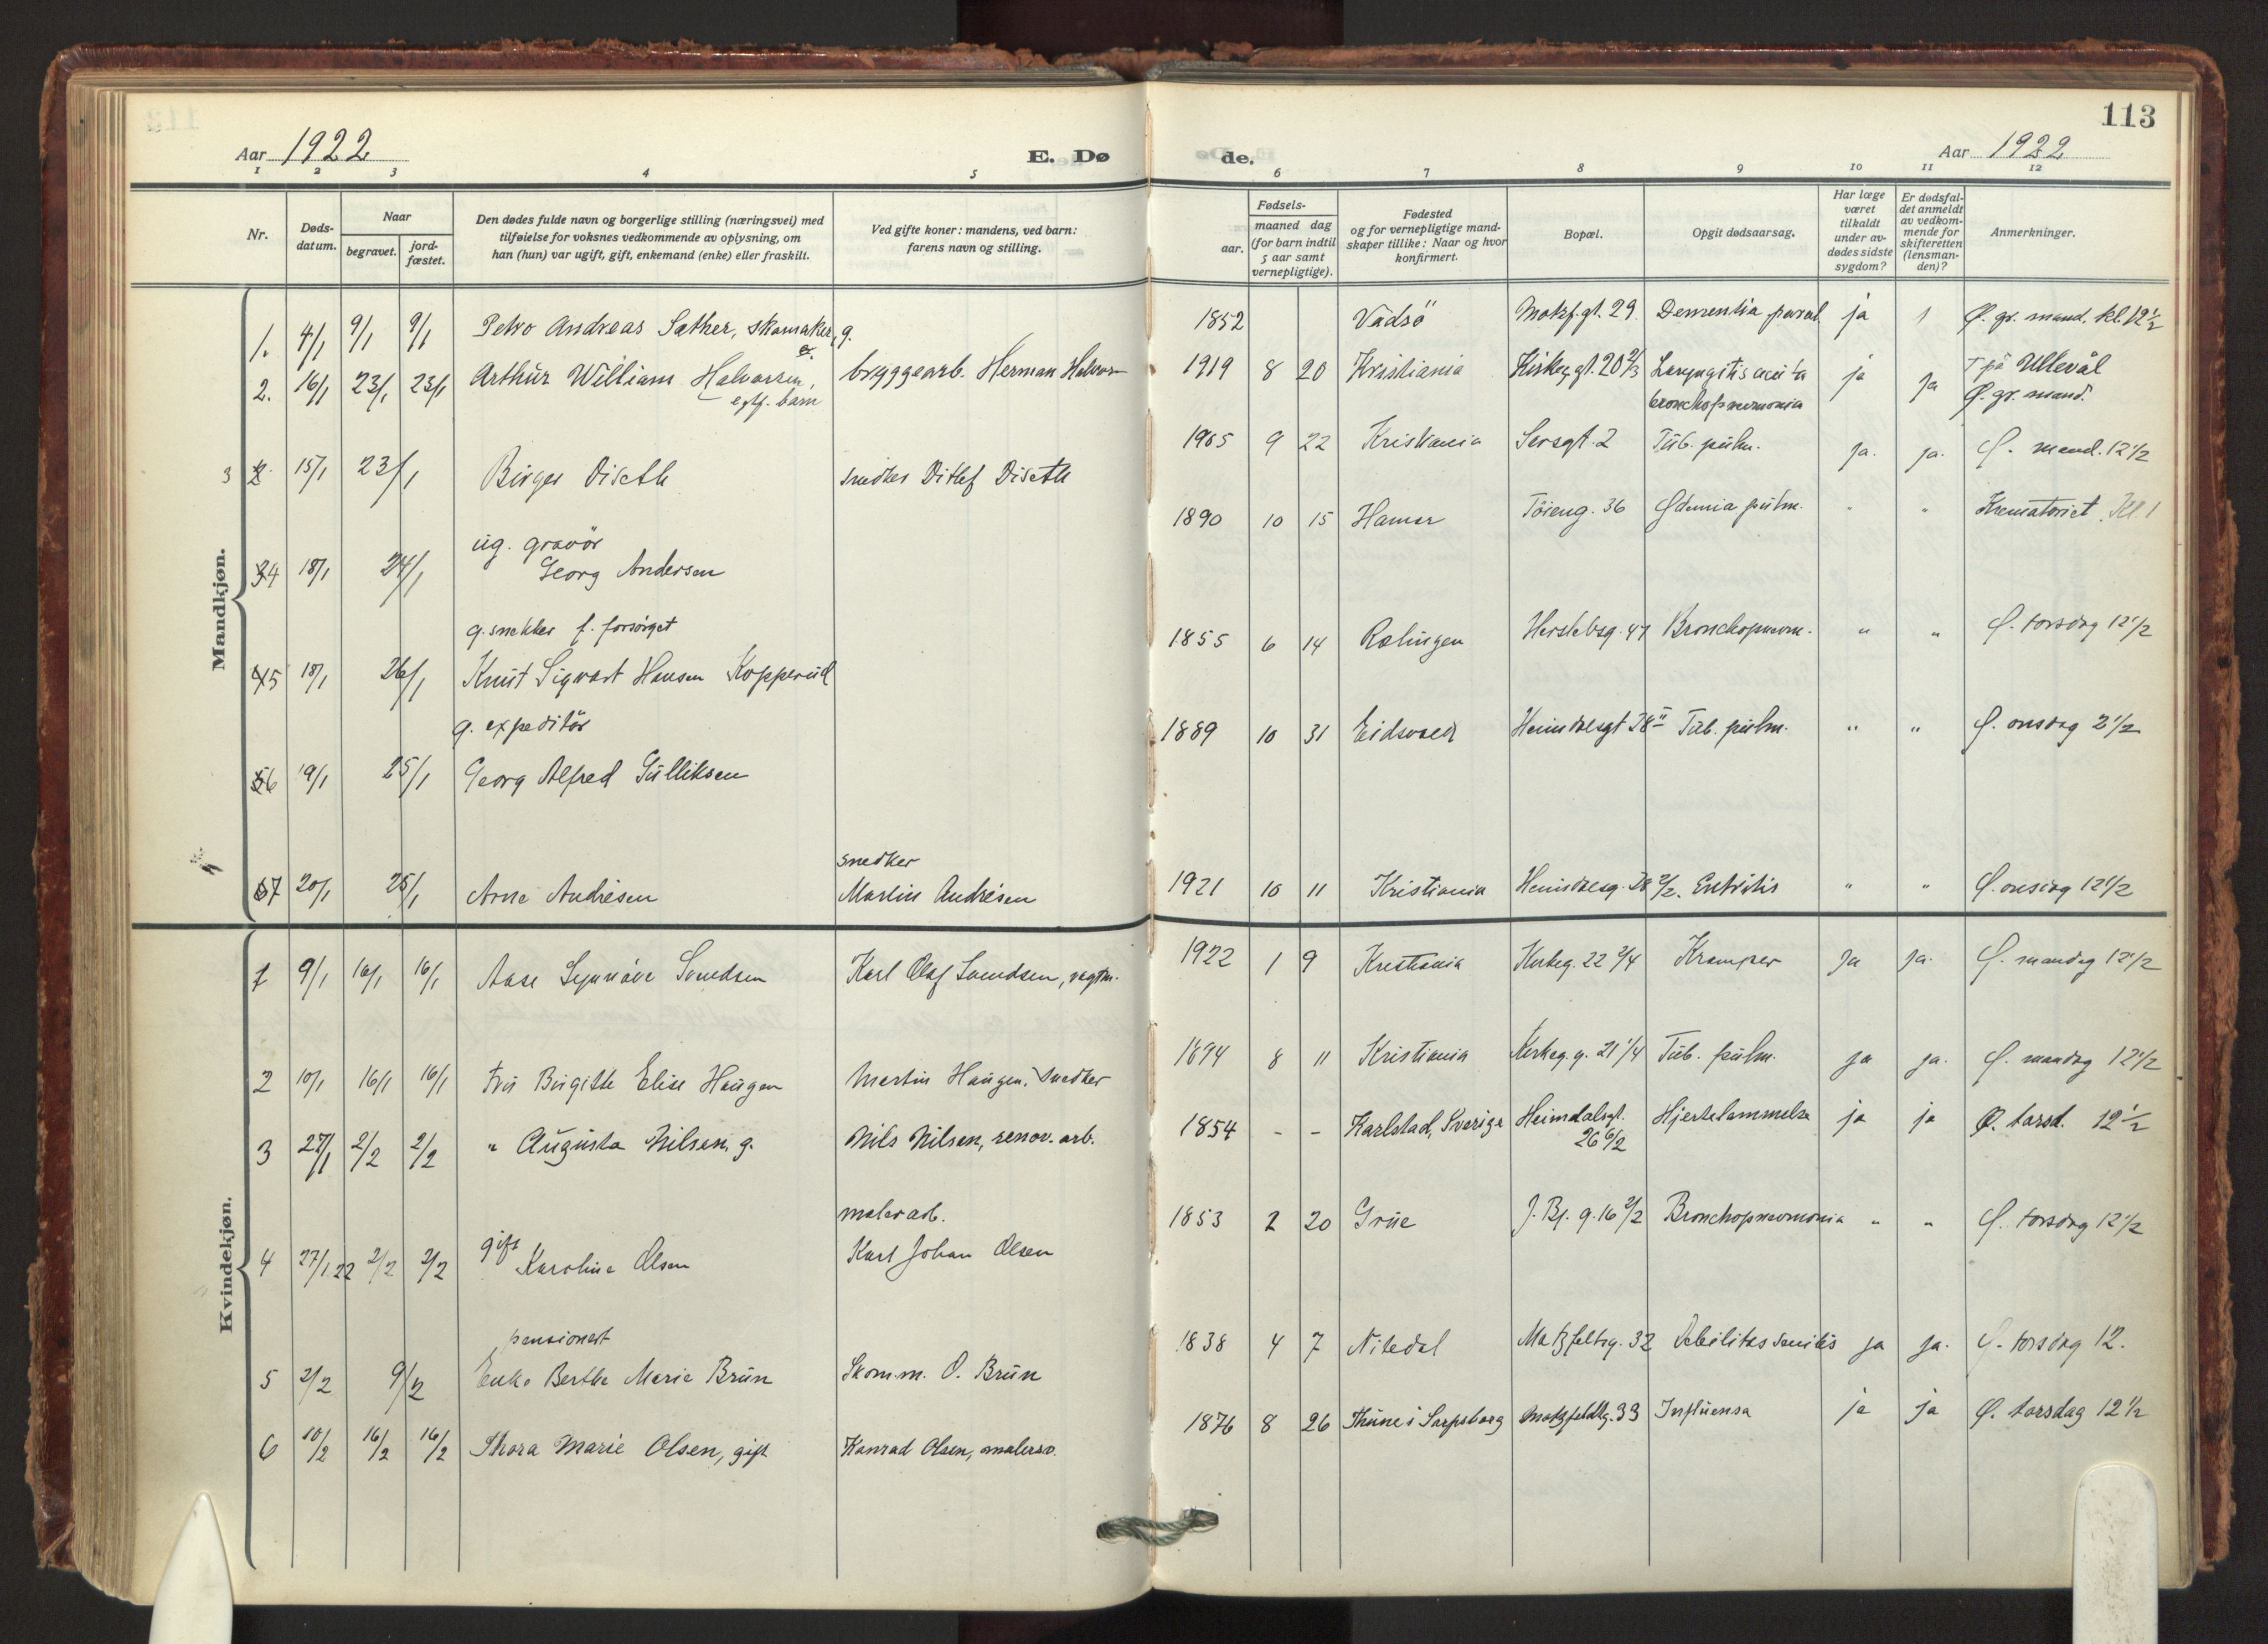 113
Aar 1922 E. Dø de. Aar 1922
1 2 3 4 5 6 7 8 9 10 11 12
Nr.
Døds-
datum.
Naar
begravet.
jord-
fæstet.
Den dødes fulde navn og borgerlige stilling (næringsvei) med
tilføielse for voksnes vedkommende av oplysning, om
han (hun) var ugift, gift, enkemand (enke) eller fraskilt.
Ved gifte koner: mandens, ved barn:
farens navn og stilling.
Fødsels-
aar.
maaned dag
(for barn indtil
5 aar samt
vernepligtige).
Fødested
og for vernepligtige mand-
skaper tillike: Naar og hvor
konfirmert.
Bopæl.
Opgit dødsaarsag.
Har læge
været
tilkaldt
under av-
dødes sidste
sygdom?
Er dødsfal-
det anmeldt
av vedkom-
mende for
skifteretten
(lensman-
den)?
Anmerkninger.
Mandkjøn.
1. 4/1 9/1 9/1 Petro Andreas Sæther, skomaker, g. 1852 Vadsö Motzf.gt. 29 Dementia paral. ja 1 Ø. gr. mand. kl. 12 1/2
2. 16/1 23/1 23/1 Arthur William Halvorsen, bryggearb. Herman Halvorsen 1919 8 20 Kristiania Kirkeg.gt. 20 2/3 Laryngitis acuta ja ja † på Ullevål
egtf. barn bronchopneumonia Ø. gr. mand.
3 15/1 23/1 Birger Diseth snedker Ditlef Diseth 1905 9 22 Kristiania Sarsgt. 2 Tub. pulm. ja. ja. Ø. mand. 12 1/2
ug. gravör
4 18/1 24/1 Georg Andersen 1890 10 15 Hamar Töieng. 36 pulm. " " Krematoriet Kl 1
g. snekker f. forsörget
5 18/1 26/1 Knut Sigvart Hansen Kopperud 1855 6 14 Rælingen Herslebsg. 41 Bronchopneum. " " Ø. torsdag 12 1/2
g. expeditör
6 19/1 25/1 Georg Alfred Gulliksen 1889 10 31 Eidsvold Heimdalsgt 28 II Tub. pulm. " " Ø. onsdag 2 1/2
snedker
7 20/1 25/1 Arne Andresen Martin Andresen 1921 10 11 Kristiania Heimdalsg. 28 2/2. Entritis " " Ø. onsdag 12 1/2
Kvindekjøn.
1 9/1 16/1 16/1 Aase Synnöve Svendsen Karl Olaf Svendsen, vagtm. 1922 1 9 Kristiania Kirkeg. 22 2/4 Kramper ja ja. Ø. mandag 12 1/2
2 10/1 16/1 16/1 Fru Birgitte Elise Haugen Martin Haugen, snedker 1894 8 11 Kristiania Kirkeg. g. 21 1/4 Tub. pulm. ja ja. Ø. mandag 12 1/2
3 27/1 2/2 2/2 " Augusta Nilsen, g. Nils Nilsen, renov. arb. 1854 - - Karlstad, Sverige Heimdalsgt. 26 6/2 Hjertelammelse ja ja Ø. torsd. 12 1/2
malerarb.
4 27/1 22 2/2 2/2 gift Karoline Olsen Karl Johan Olsen 1853 2 20 Grue J. Bj. g. 16 2/2 Bronchopneumonia " " Ø. torsdag 12 1/2
pensionert
5 2/2 9/2 Enke Berthe Marie Brun Skom.m. O. Brun 1838 4 7 Nitedal Motzfeltsg. 32 Debilitas senilis ja ja. Ø. torsdag 12.
6 10/2 16/2 16/2 Thora Marie Olsen, gift Konrad Olsen, malersv. 1876 8 26 Thune i Sarpsborg Motzfeldtg. 33 Influensa ja ja Ø. torsdag 12 1/2